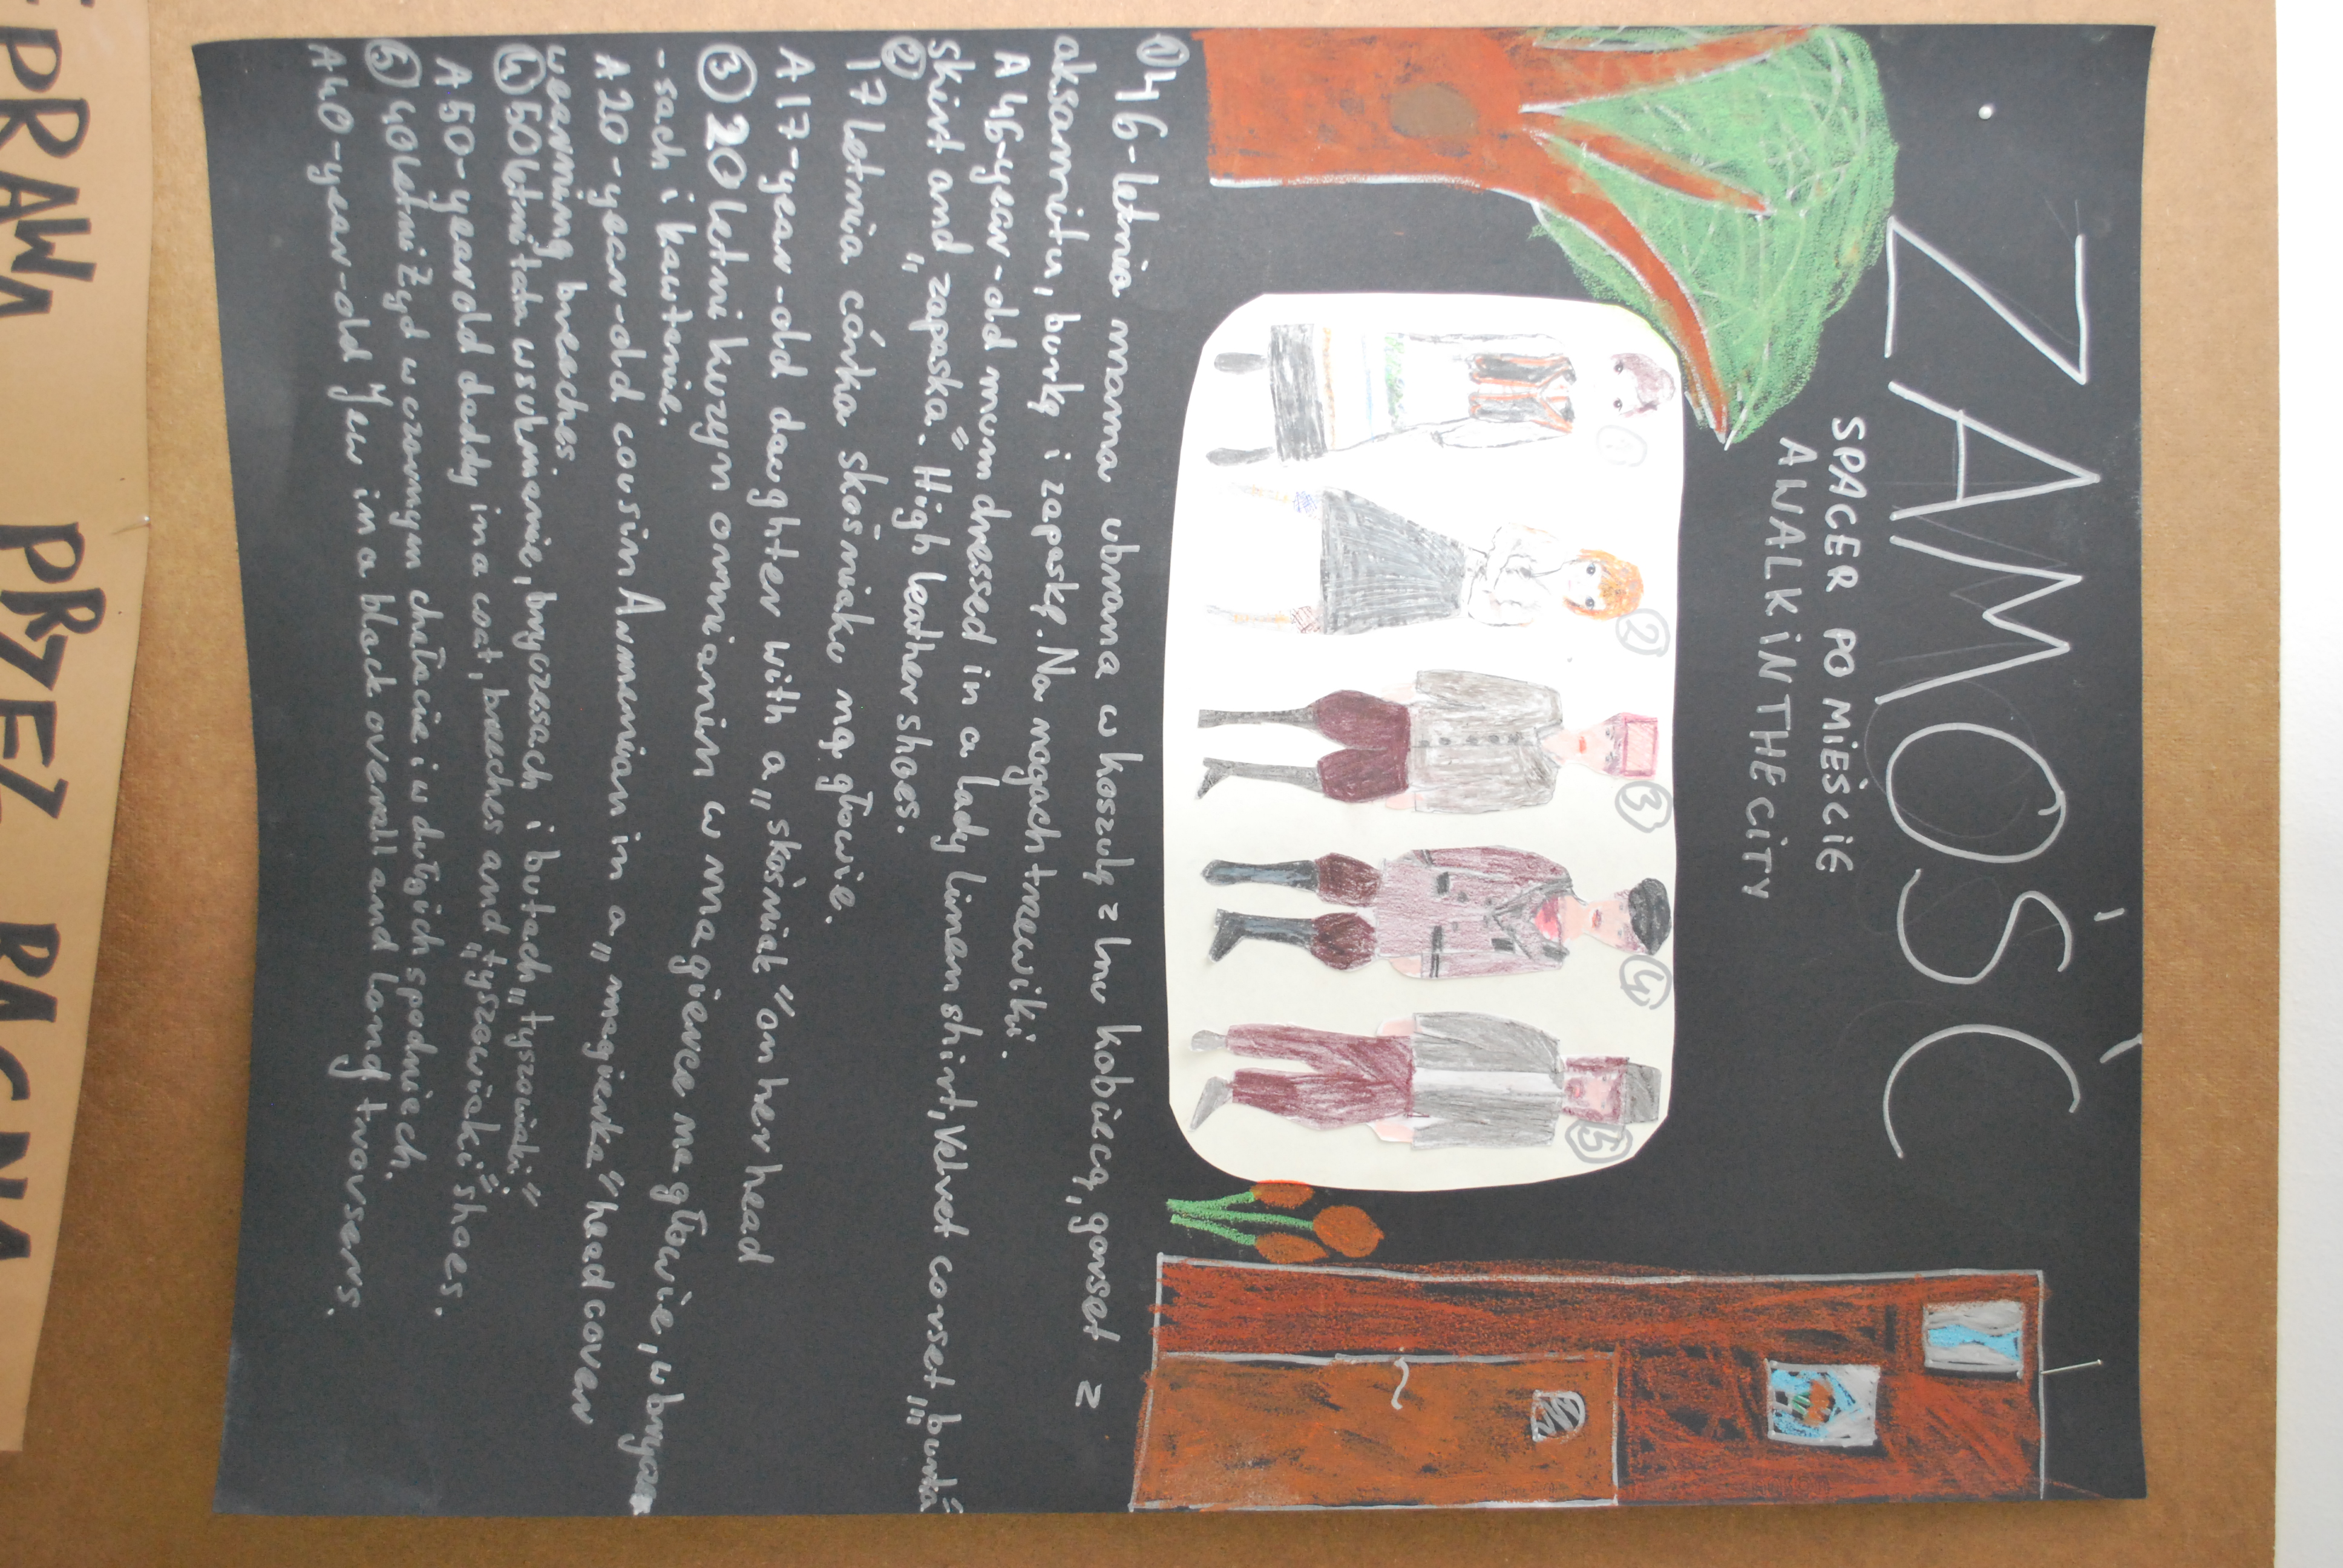 ZAMOŚĆ
SPACER PO MIEŚCIE
A WALK IN THE CITY
1
2
3
4
5
① 46-letnia mama ubrana w koszulę z lnu kobiecą, gorset z
aksamitu, burkę i zapaskę. Na nogach trzewiki.
A 46-year-old mum dressed in a lady linen shirt, velvet corset, „burka"
skirt and „zapaska". High leather shoes.
② 17 letnia córka skośniaku na głowie.
A 17-year-old daughter with a „skośniak" on her head
③ 20 letni kuzyn ormianin w magierce na głowie, w brycze
-sach i kawtanie.
A 20-year-old cousin Armenian in a „magierka" head cover
wearning breaches.
④ 50 letni tata w sukmanie, bryczesach i butach „tyszowiaki"
A 50-year old daddy in a coat, breeches and „tyszowiaki" shoes.
⑤ 40 letni Żyd w czarnym chałacie i w długich spodniech.
A 40-year-old Jew in a black overall and long trousers.
PRAWA PRZEZ